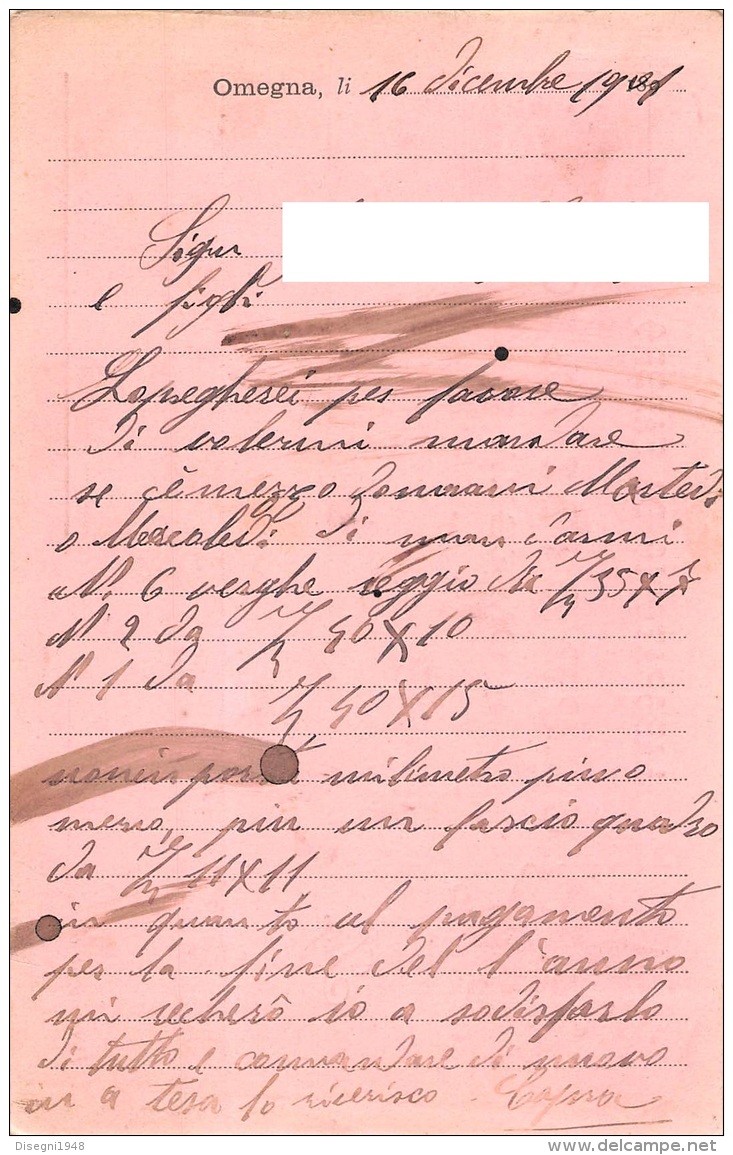 Omegna, li 16 Dicembre 1921
Sigr
e figli
Lo pregherei per favore
di volermi mandare
se c'è mezzo domani Martedi
o Mercoledi di mandarmi
N. 6 verghe reggio da m/m 35 x 7
N 2 da m/m 40 x 10
N 1 da
m/m 40 x 15
non importa milimetro piu o
meno, piu un fascio quadro
da m/m 11 x 11
in quanto al pagamento
per la fine del l'anno
mi recherò io a sodisfarlo
di tutto e comandare di nuovo
in a tesa lo riverisco -
Disegni1948
www.delcampe.net